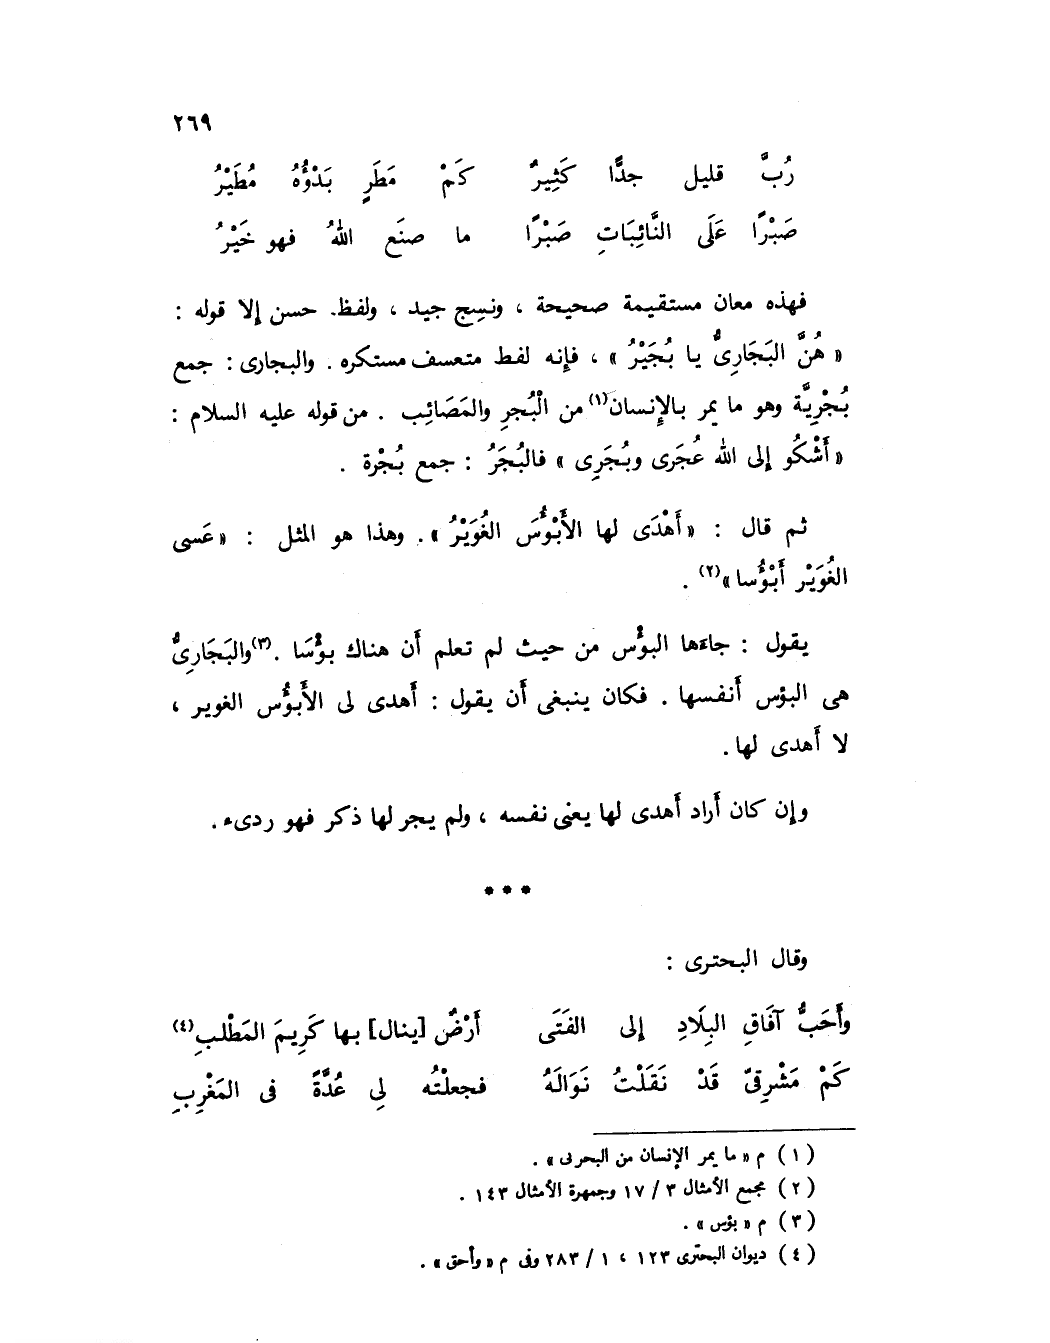 ٢٦٩
رُبَّ قليل جدًّا كَثِيرٌ كَمْ مَطَرٍ بَدْؤُهُ مُطَيْرُ
صَبْرًا عَلَى النَّائِبَاتِ صَبْرًا ما صنَع اللهُ فهو خَيْرُ
فهذه معان مستقيمة صحيحة ، ونسِج جيد ، ولفظ. حسن إلا قوله :
« هُنَّ البَجَارِىُّ يا بُجَيْرُ » ، فإنه لفط متعسف مستكره . والبجارى : جمع
بُجْرِيَّة وهو ما يمر بالإِنسان(١) من الْبُجرِ والمَصَائِب . من قوله عليه السلام :
« أَشْكُو إلى الله عُجَرى وبُجَرِى » فالبُجَرُ : جمع بُجْرة .
ثم قال : « أَهْدَى لها الأَبْؤُسَ الغُوَيْرُ » . وهذا هو المثل : « عَسى
الغُوَيْر أَبْؤُسا »(٢) .
يقول : جاءَها البؤْس من حيث لم تعلم أَن هناك بؤْسَا . (٣)والبَجَارِىُّ
هى البؤس أَنفسها . فكان ينبغى أَن يقول : أَهدى لى الأَبؤُس الغوير ،
لا أَهدى لها .
وإن كان أَراد أَهدى لها يعنى نفسه ، ولم يجر لها ذكر فهو ردىء .
* * *
وقال البحترى :
وأَحَبُّ آفَاقِ البِلَادِ إلى الفَتَى أَرْضٌ [ينال] بها كَرِيمَ المَطْلبِ(٤)
كَمْ مَشْرِقىّ قَدْ نَقَلْتُ نَوَالَهُ فجعلْتُه لِى عُدَّةً فى المَغْرِبِ
(١) م « ما يمر الإنسان من البحرى » .
(٢) مجمع الأمثال ٣ / ١٧ وجمهرة الأمثال ١٤٣ .
(٣) م « بؤس » .
(٤) ديوان البحترى ١٢٣ ، ١ / ٢٨٣ وفى م « وأحق » .